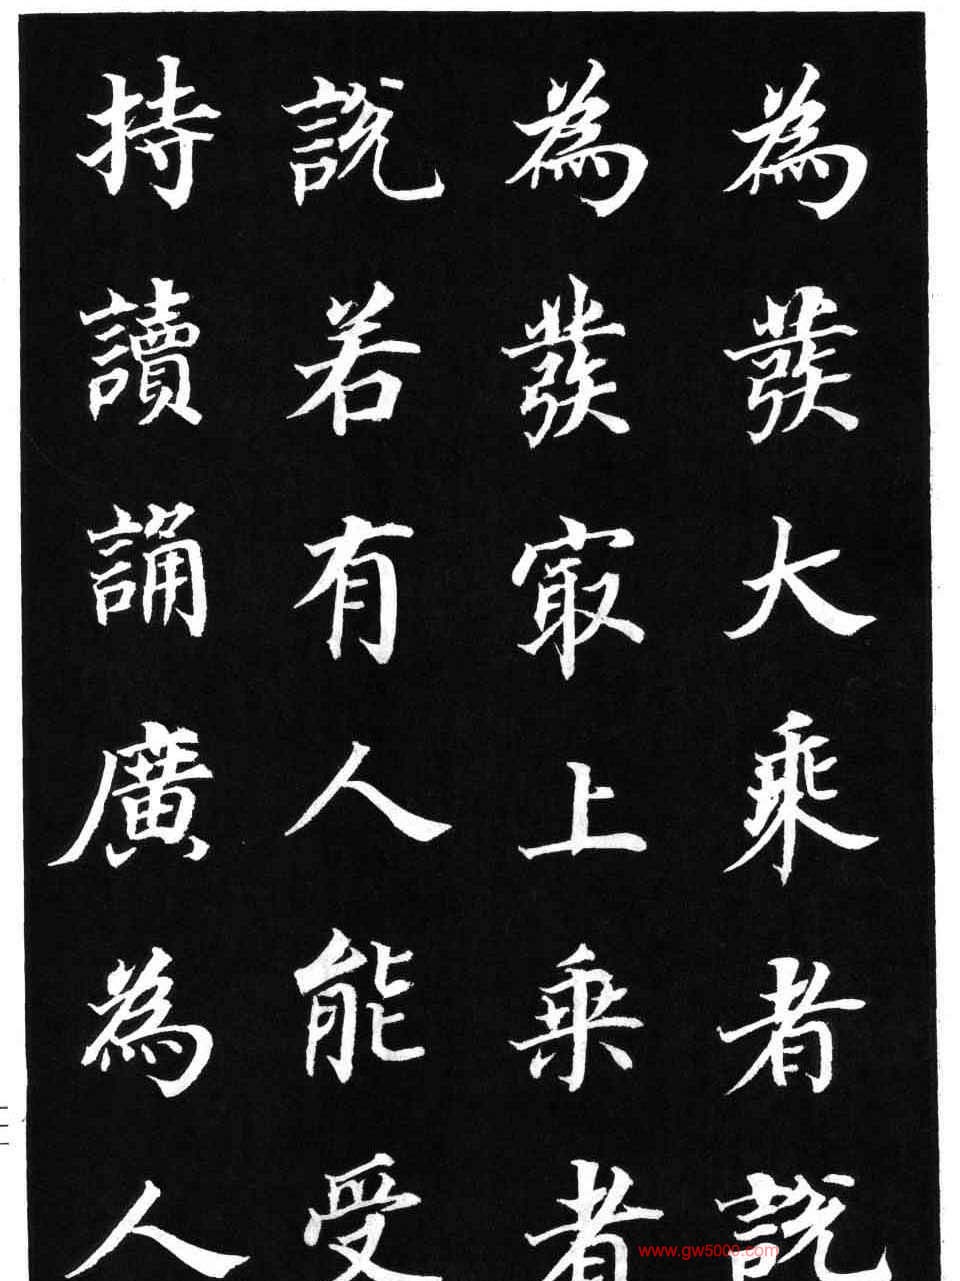 為發大乘者說
為發冣上乘者
說若有人能受
持讀誦廣為人
www.gw5000.com